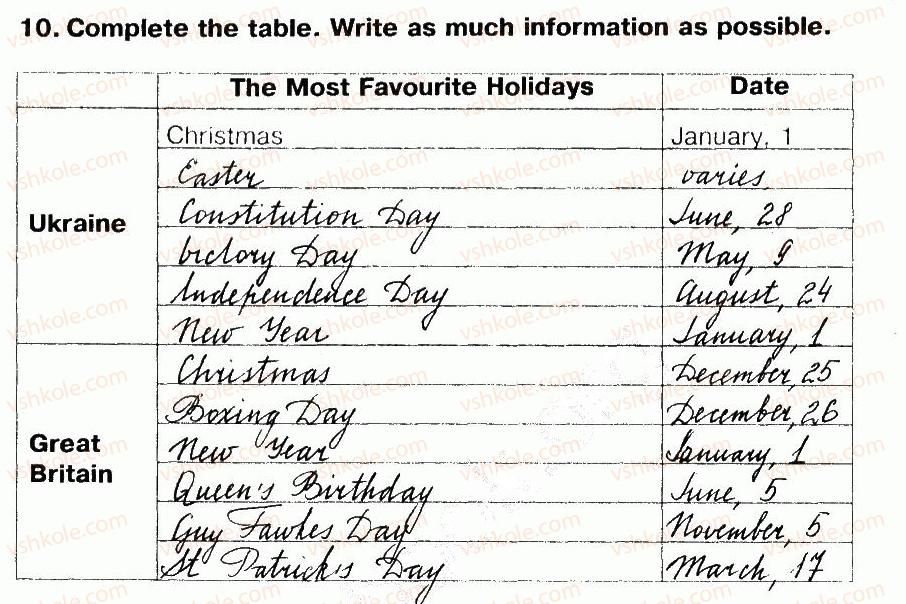 10. Complete the table. Write as much information as possible.
The Most Favourite Holidays Date
Christmas January, 1
Easter varies
Ukraine Constitution Day June, 28
Victory Day May, 9
Independence Day August, 24
New Year January, 1
Christmas December, 25
Boxing Day December, 26
Great Britain New Year January, 1
Queen's Birthday June, 5
Guy Fawkes Day November, 5
St Patrick's Day March, 17
vshkole.com